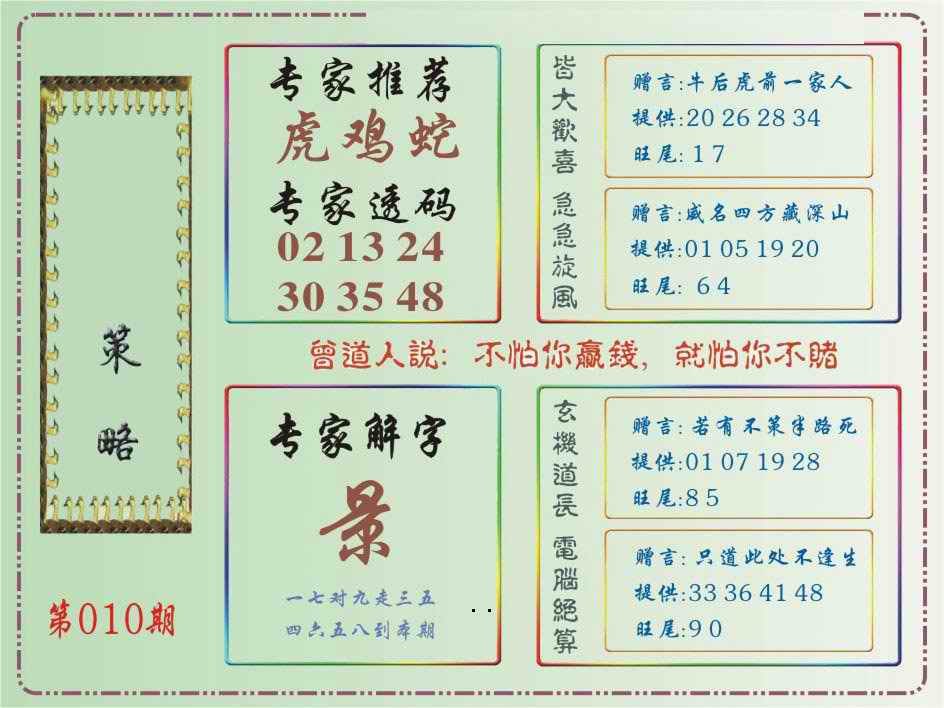 策
略
第010期
专家推荐
虎鸡蛇
专家透码
02 13 24
30 35 48
皆大歡喜
赠言:牛后虎前一家人
提供:20 26 28 34
旺尾:1 7
急急旋風
赠言:威名四方藏深山
提供:01 05 19 20
旺尾: 6 4
曾道人説: 不怕你贏錢, 就怕你不賭
专家解字
景
一七对九走三五
四六五八到本期
玄機道長
赠言: 若有不策半路死
提供:01 07 19 28
旺尾:8 5
電腦絕算
赠言: 只道此处不逢生
提供:33 36 41 48
旺尾:9 0